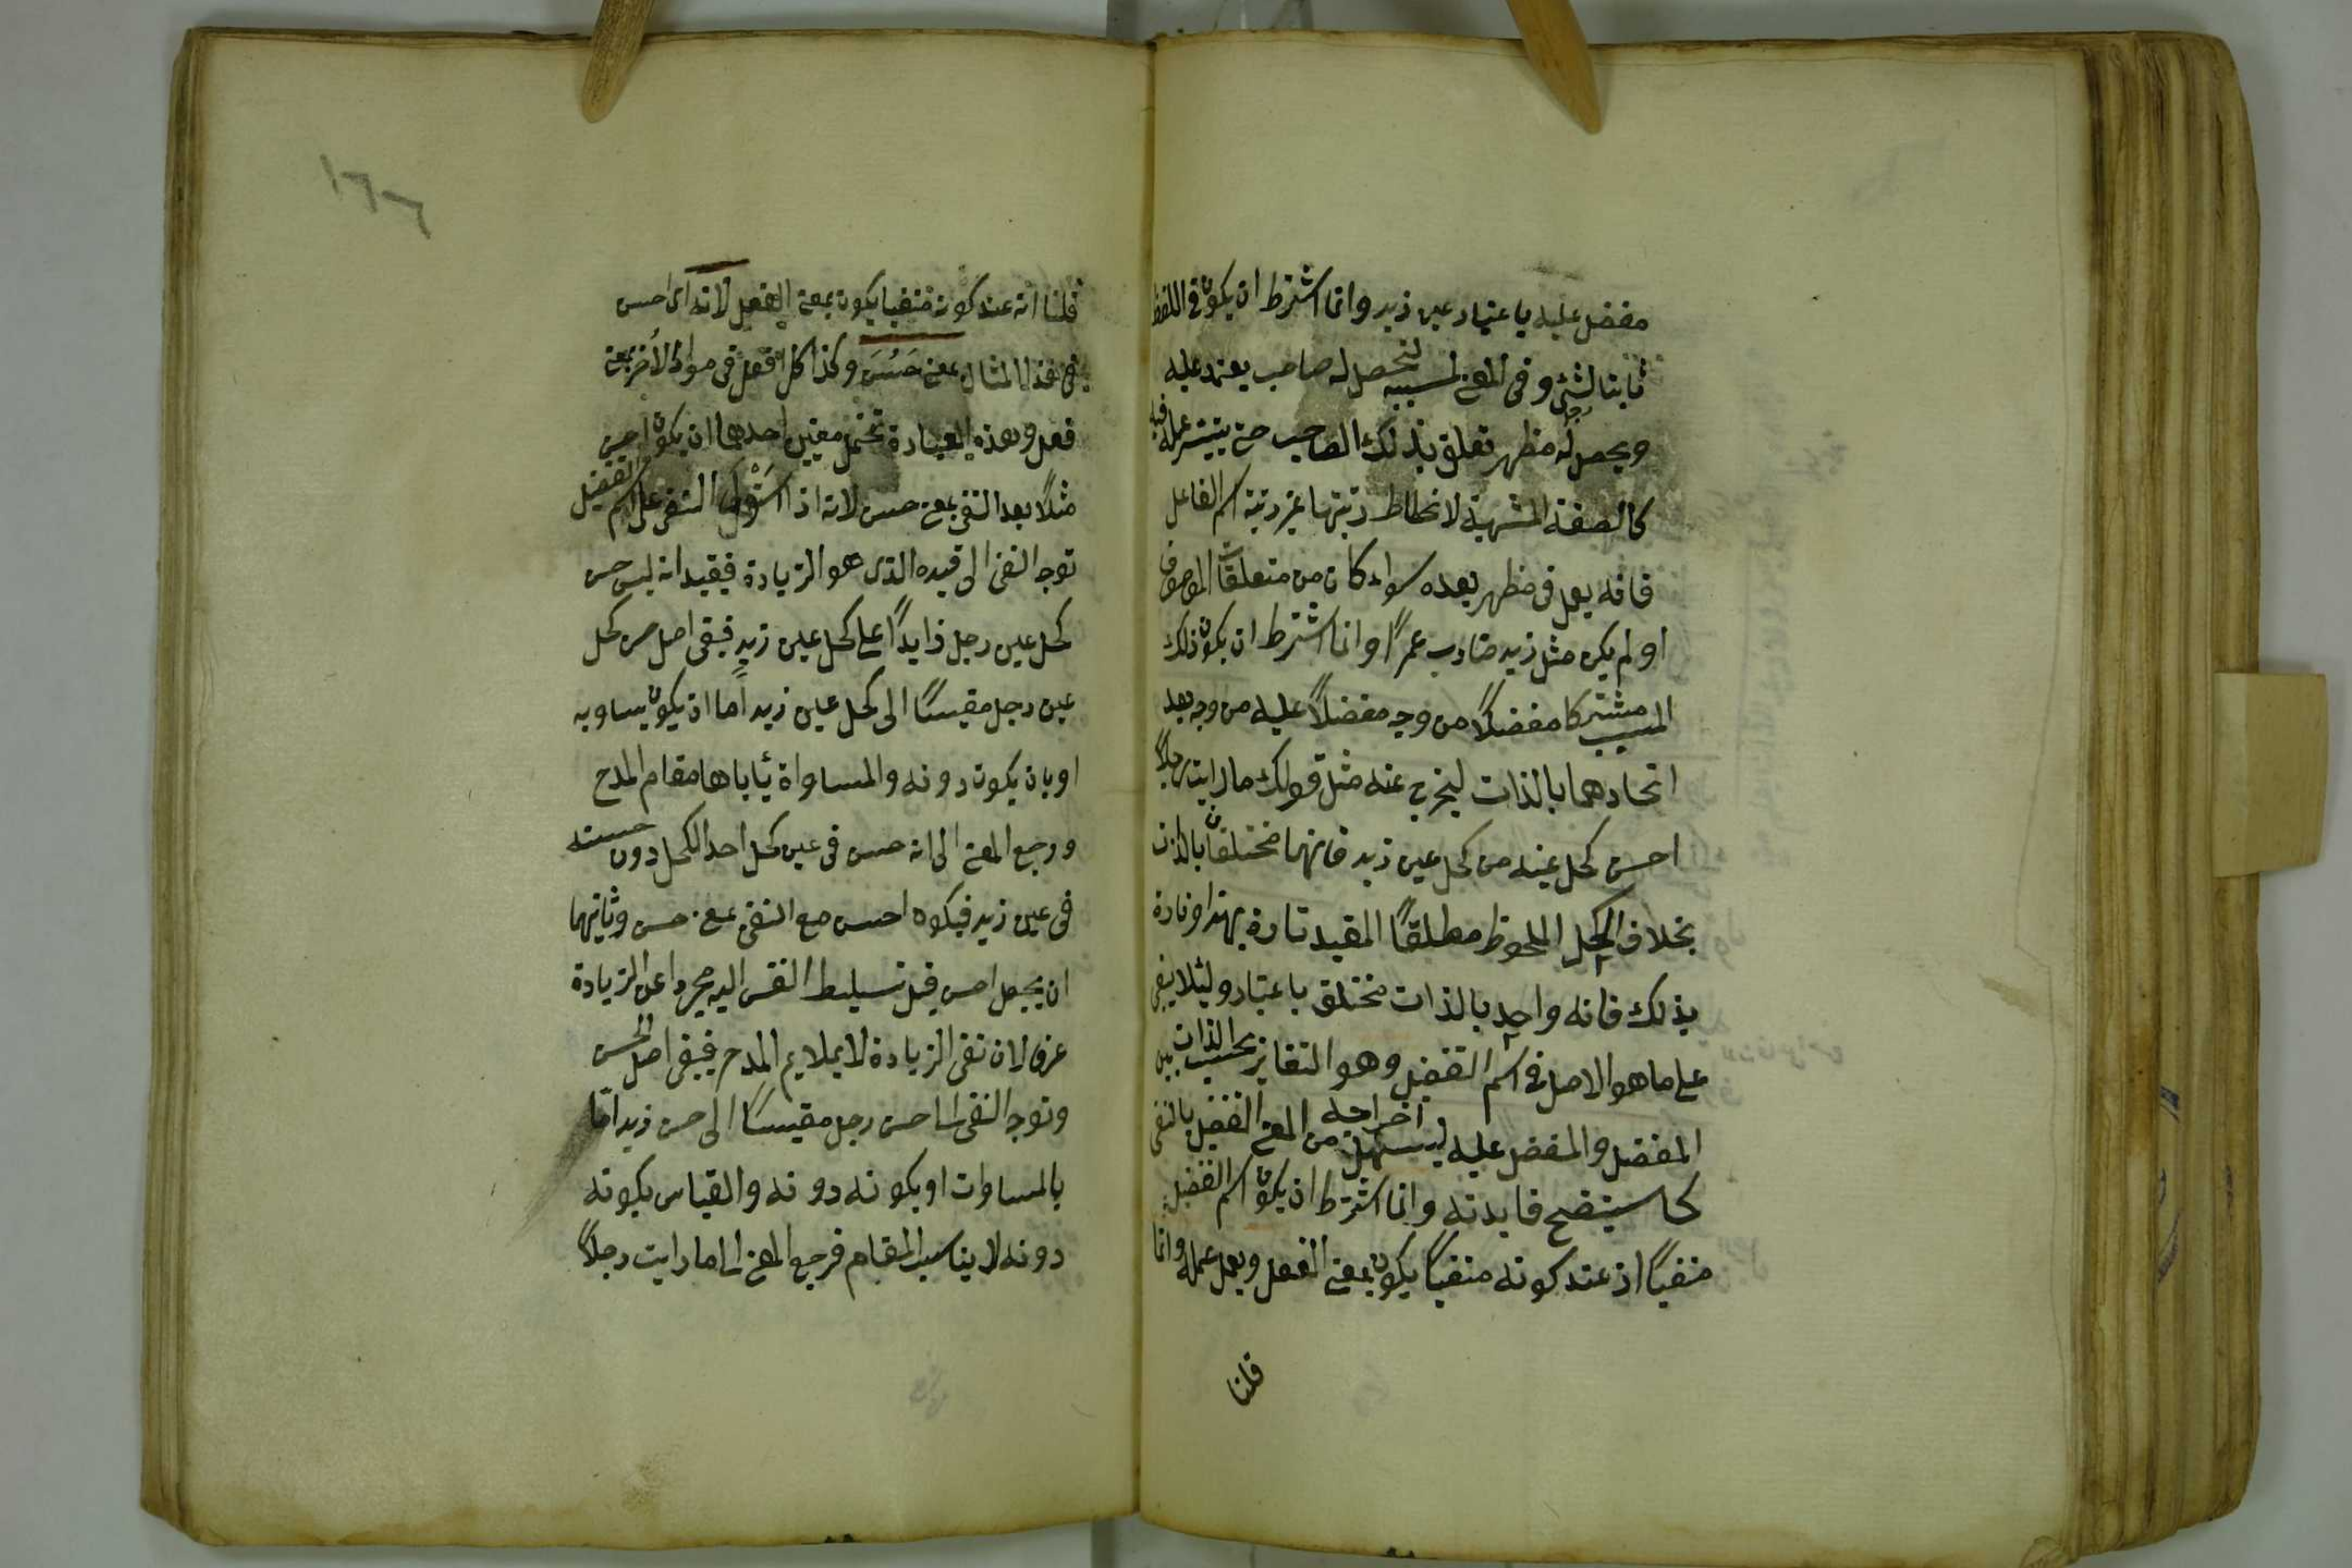 مفضل عليه باعتبار عين زيد وانما اشترط ان يكون في اللفظ
ثابتا لشئ وفى المعنى لمسببه ليحصل له صاحب يعتمد عليه
ويحصل له مظهر تعلق بذلك الصاحب حتى يتيسر عمله فيه
كالصفة المشبهة لانحطاط رتبتها عن رتبة اسم الفاعل
فانه يعمل فى مظهر بعده سواء كان من متعلقات الموصوف
او لم يكن مثل زيد ضارب عمرًا وانما اشترط ان يكون ذلك
المسبب مشتركا مفضلًا من وجه مفضلًا عليه من وجه بعد
اتحادهما بالذات ليخرج عنه مثل قولك ما رايت رجلًا
احسن كحل عينه من كحل عين زيد فانهما مختلفان بالذات
بخلاف الكحل الملحوظ مطلقًا المقيد تارة بهذا وتارة
بذلك فانه واحد بالذات مختلف باعتبار ولئلا يبقى
على ما هو الاصل فى اسم التفضيل وهو التغاير بحسب الذات بين
المفضل والمفضل عليه ليسهل اخراجه من المعنى التفضيل بالنفى
كما سيتضح فايدته وانما اشترط ان يكون اسم التفضيل
منفيًا اذ عند كونه منفيًا يكون بمعنى الفعل ويعمل عمله وانما
قلنا
١٦٦
قلنا انه عند كونه منفيا يكون بمعنى الفعل لانه اى احسن
فى هذا المثال بمعنى حَسُنَ وكذا كل افعل فى مواد الأخر بمعنى
فعل وهذه العبادة تحتمل معنيين احدهما ان يكون احسن
مثلًا بعد النفى بمعنى حسن لانه اذا استَوْلى النفى على اسم التفضيل
توجه النفى الى قيده الذى هو الزيادة فيفيد انه ليس حسن
كحل عين رجل زايدًا على كحل عين زيدٍ فبقى اصل حسن كحل
عين رجل مقيسًا الى كحل عين زيد اما ان يكون يساويه
او بان يكون دونه والمساواة يأباها مقام المدح
ورجع المعنى الى انه حسن فى عين كحل احد الكحل دون حسنه
فى عين زيد فيكون احسن مع النفى بمعنى حسن وثانيهما
ان يجعل احسن قبل تسليط النفى اليه مجردا عن الزيادة
عرفا لان نفى الزيادة لا يملايم المدح فيبقى اصل الحسن
وتوجه النفى الى احسن رجل مقيسًا الى حسن زيد امّا
بالمساوات او بكونه دونه والقياس بكونه
دونه لا يناسب المقام فرجع المعنى الى ما رايت رجلًا